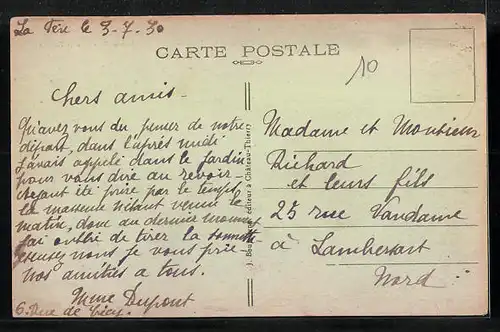 La Fère le 3-7-30
CARTE POSTALE
10
Chers amis -
Qu'avez vous du penser de notre
départ, dans l'après midi
j'avais appelé dans le jardin
pour vous dire au revoir -
ayant été prise par le temps,
la masseuse n'étant venue le
matin, donc au dernier moment
j'ai oublié de tirer la sonnette
excusez nous je vous prie
nos amitiés a tous.
Mme Dupont
6. Rue de
J. Bourgogne éditeur à Château-Thierry
Madame et Monsieur
Richard
et leurs fils
25 rue Vandame
à Lambersart
Nord